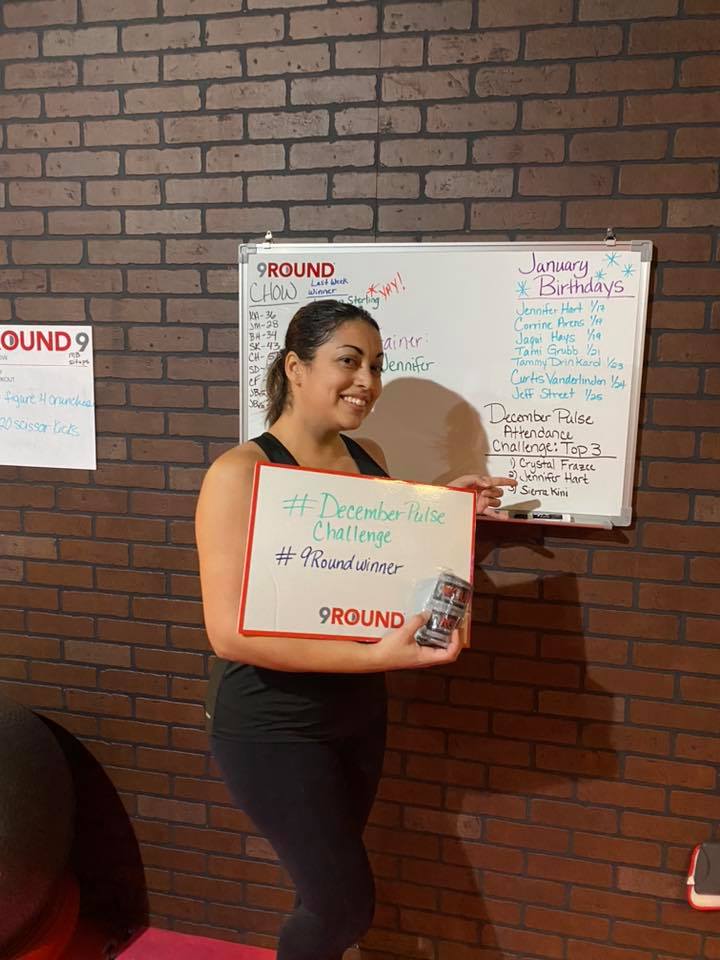 9ROUND
CHOW
Last Week
Winner
Sterling
YAY!
MA-36
JM-28
BH-34
SK-43
CH-
SD-
CF
rainer:
Jennifer
January
Birthdays
Jennifer Hart 1/17
Corrine Arens 1/19
Jaqui Hays 1/19
Tami Grubb 1/21
Tammy Drinkard 1/23
Curtis Vanderlinden 1/24
Jeff Street 1/25
December Pulse
Attendance
Challenge: Top 3
1) Crystal Frazee
2) Jennifer Hart
3) Sierra Kini
OUND 9
OW
OUT
figure 4 crunches
20 scissor kicks
#DecemberPulse
Challenge
#9Roundwinner
9ROUND